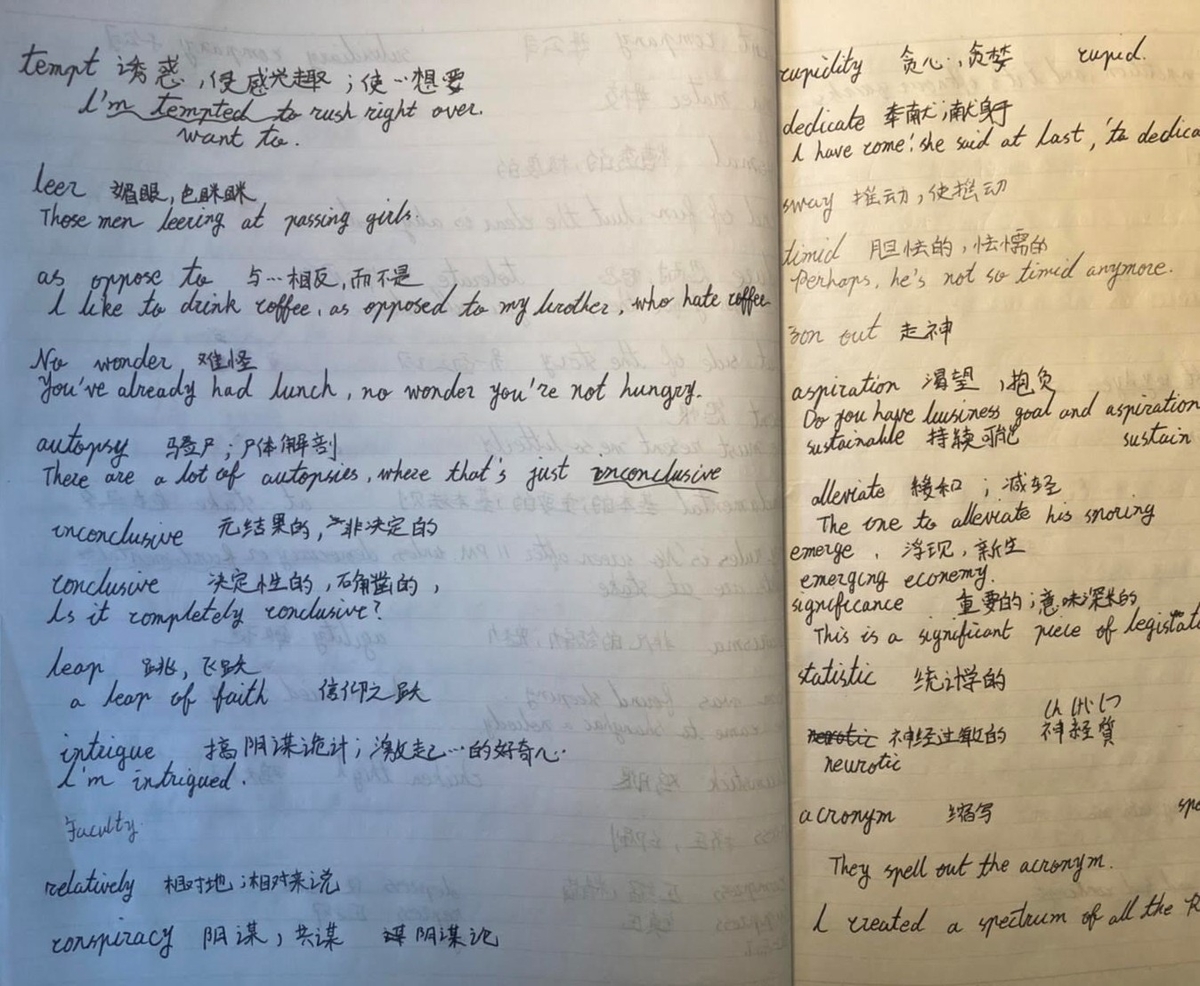 tempt 诱惑，使感兴趣；使…想要
I'm tempted to rush right over.
want to.
leer 媚眼，色眯眯
Those men leering at passing girls.
as oppose to 与…相反，而不是
I like to drink coffee, as opposed to my brother, who hate coffee
No wonder 难怪
You've already had lunch, no wonder you're not hungry.
autopsy 验尸；尸体解剖
There are a lot of autopsies, where that's just inconclusive
inconclusive 无结果的，非决定的
conclusive 决定性的，确凿的，
Is it completely conclusive?
leap 跳，飞跃
a leap of faith 信仰之跃
intrigue 搞阴谋诡计；激起…的好奇心…
I'm intrigued.
faculty
relatively 相对地；相对来说
conspiracy 阴谋，共谋 阴谋论
cupidity 贪心，贪婪 cupid.
dedicate 奉献；献身于
I have come', she said at last, 'to dedica
sway 摇动，使摇动
timid 胆怯的，怯懦的
Perhaps, he's not so timid anymore.
zon out 走神
aspiration 渴望，抱负
Do you have business goal and aspiration
sustainable 持续可能 sustain
alleviate 缓和；减轻
The one to alleviate his snoring
emerge . 浮现，新生
emerging economy.
significance 重要的；意味深长的
This is a significant piece of legislat
statistic 统计学的
しんけいしつ
神经过敏的 神経質
neurotic
acronym 缩写 spe
They spell out the acronym.
I created a spectrum of all the R